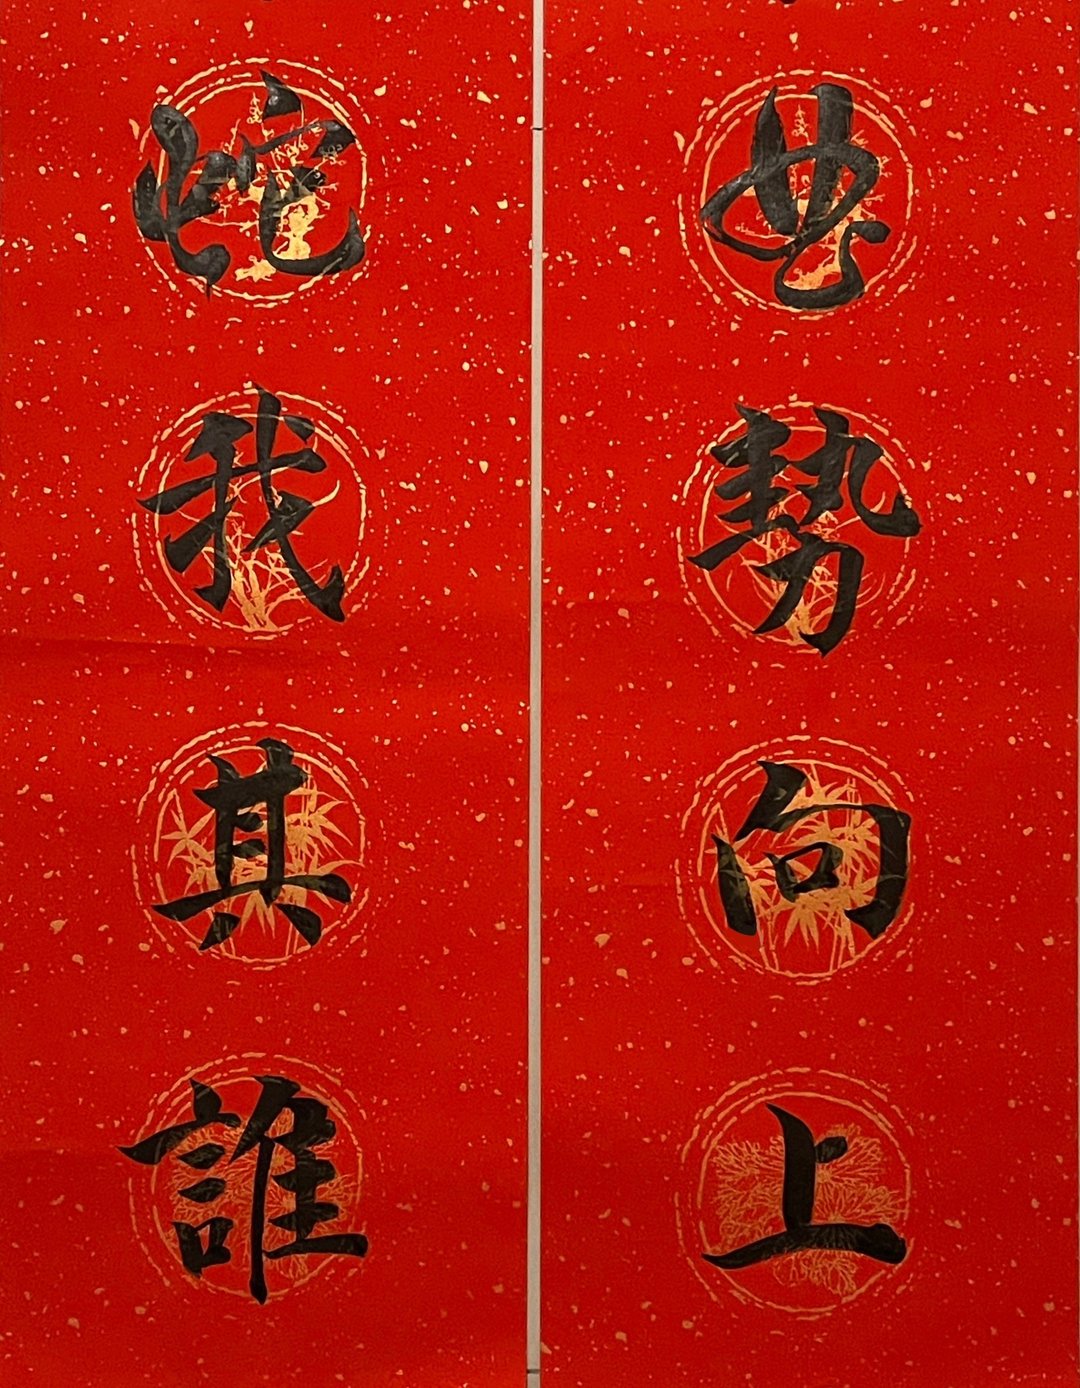 勢向上
蛇我其誰